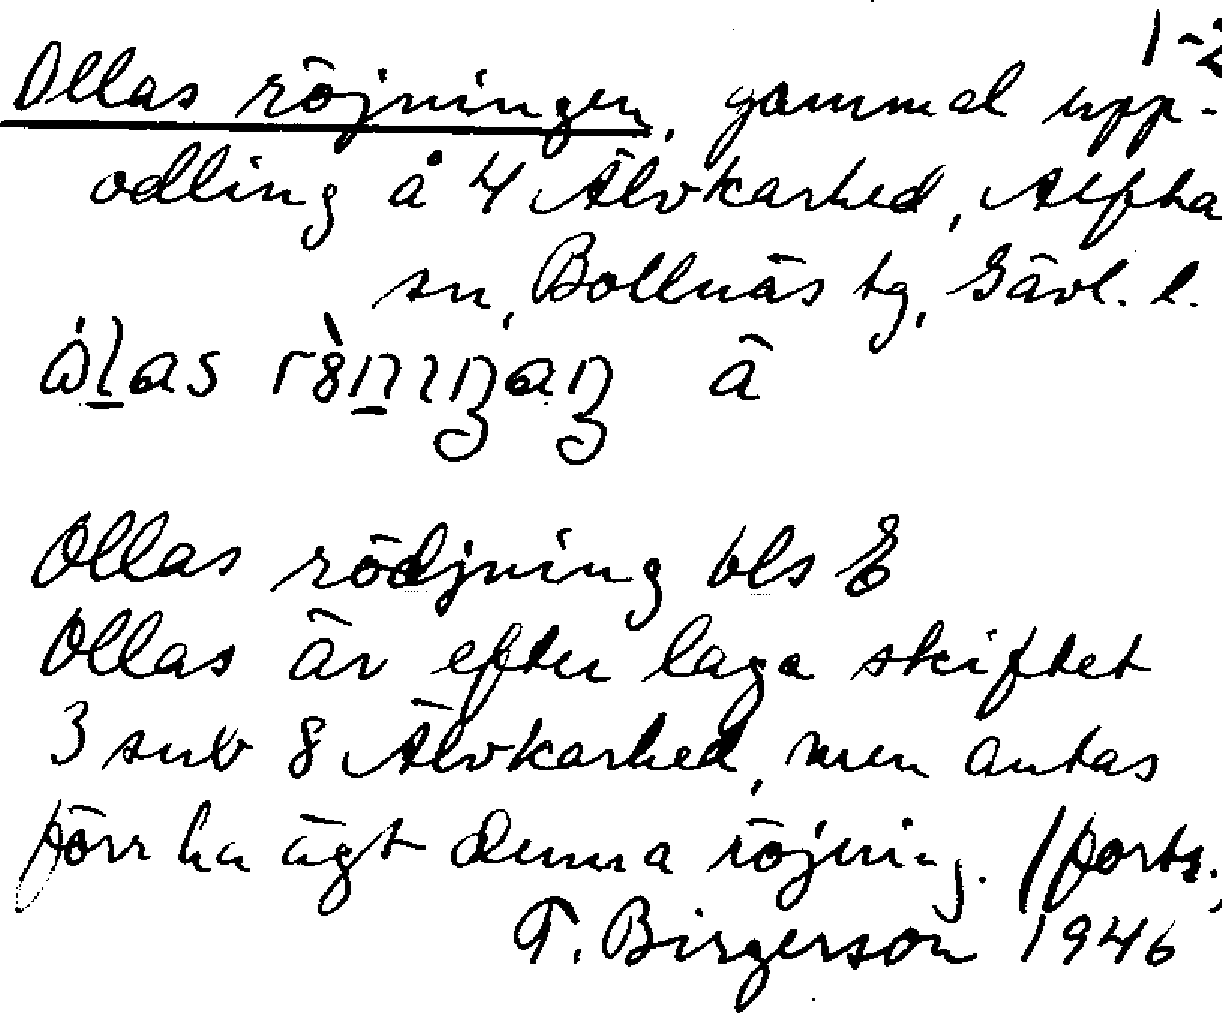 1-2
Ollas röjningen, gammal upp-
odling å 4 Älvkarhed, Alfta
sn, Bollnäs tg, Gävl. l.
å
Ollas rödjning bls E
Ollas är efter laga skiftet
3 sub 8 Älvkarhed, men antas
förr ha ägt denna röjning. (forts.)
T. Birgerson 1946